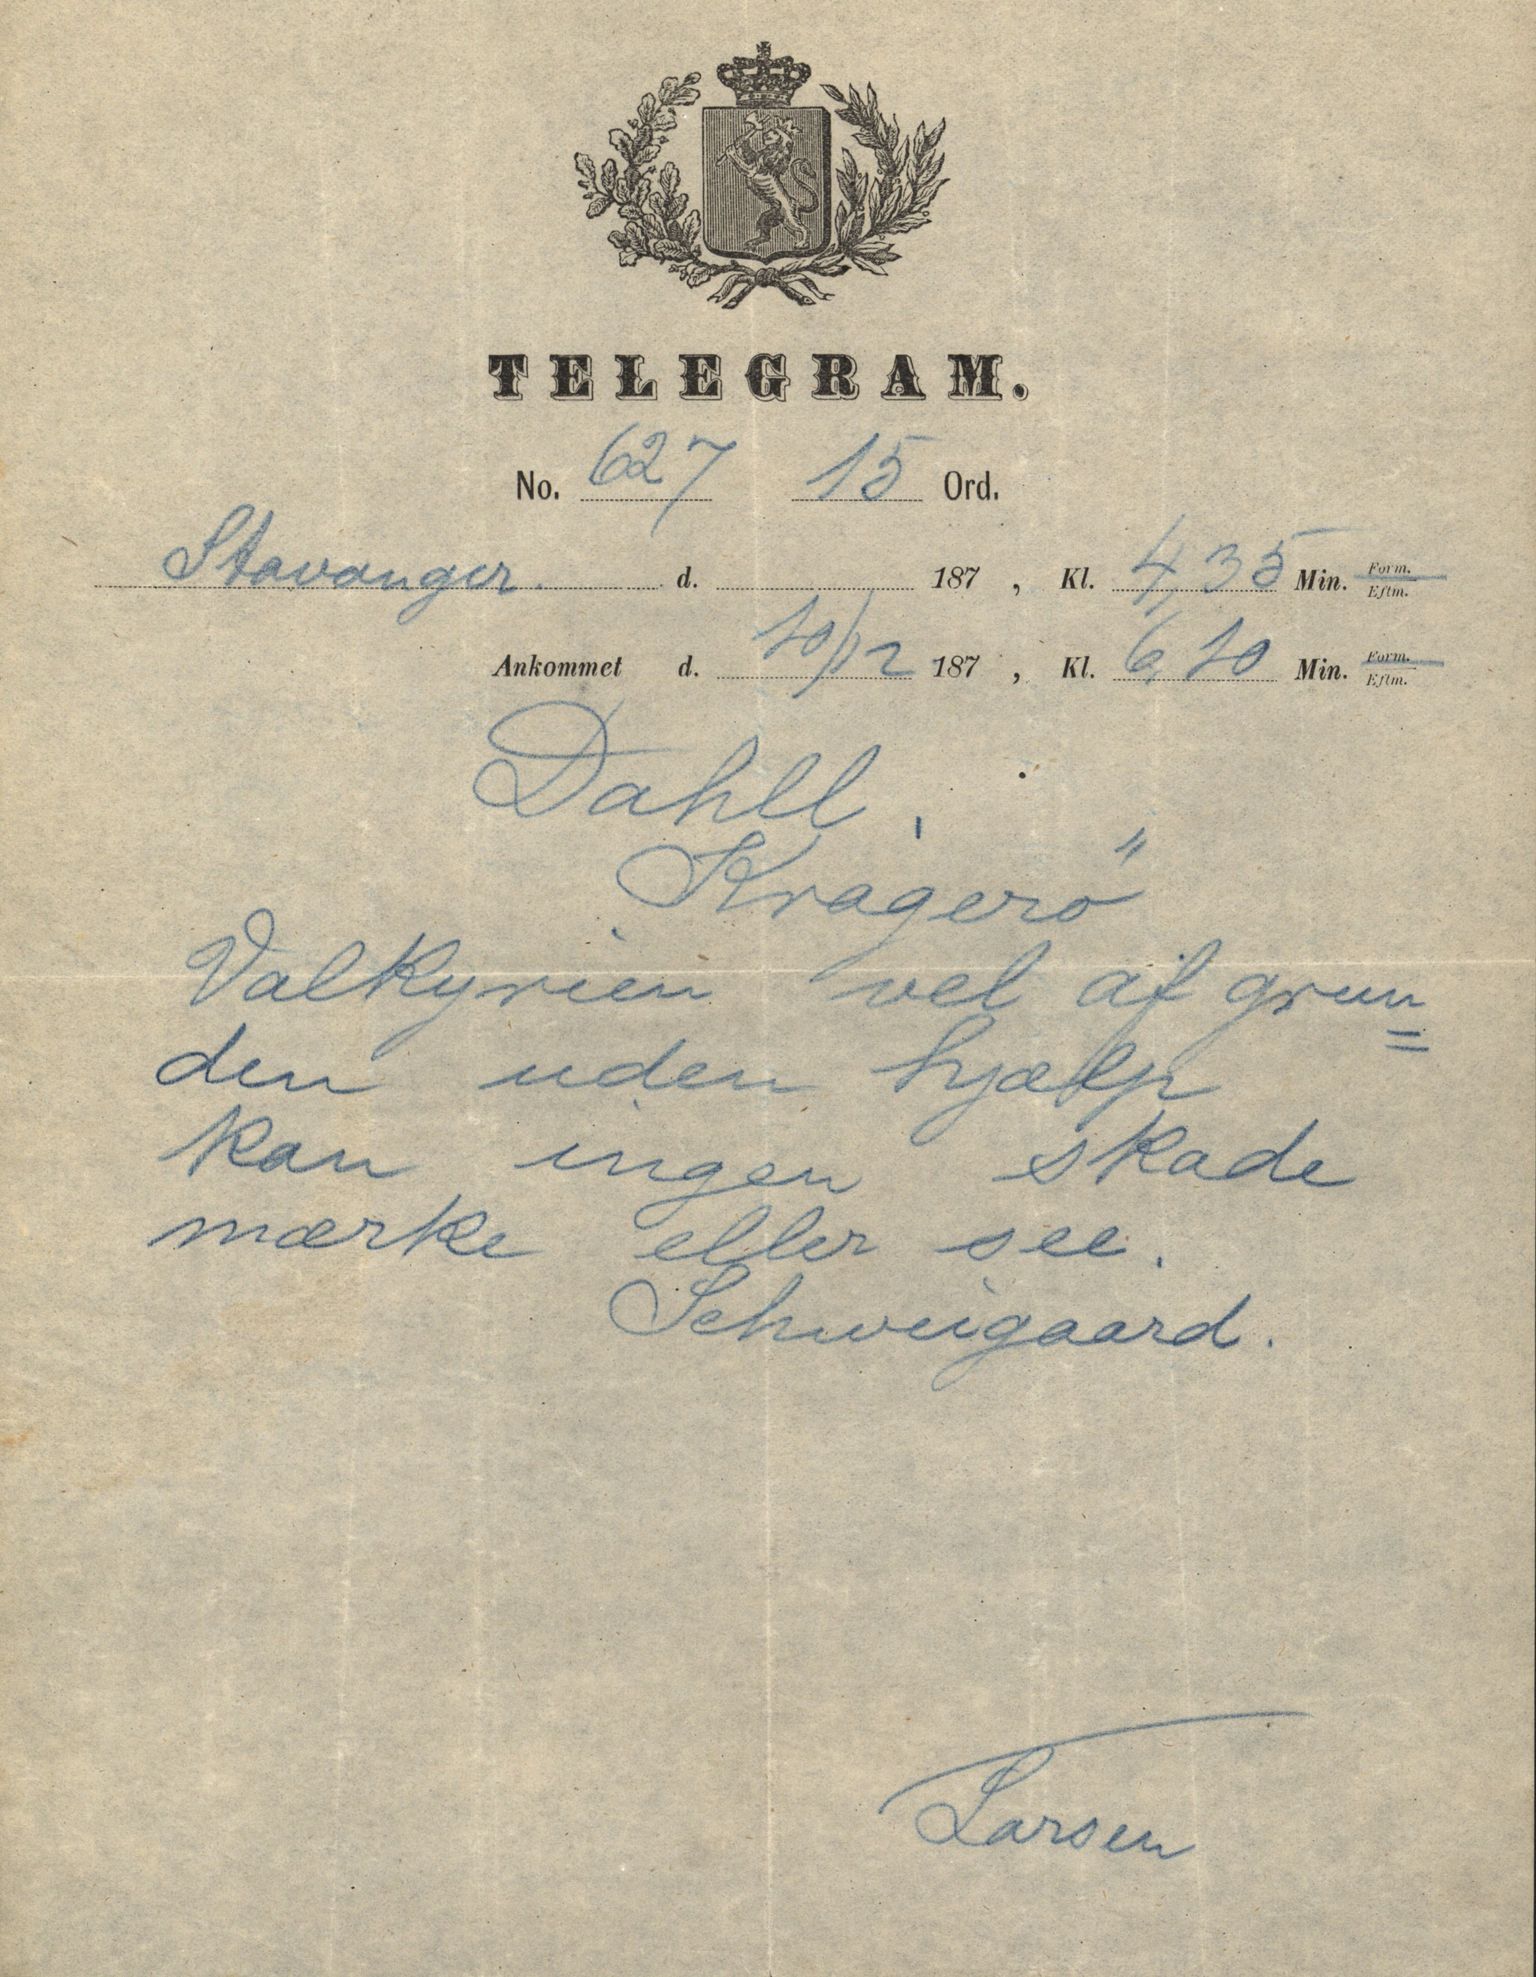 TELEGRAM.
No. 627 15 Ord.
Stavanger. d. 187 , Kl. 4,35 Min. Form. Eftm.
Ankommet d. 10/12 187 , Kl. 6,10 Min. Form. Eftm.
Dahll,
Kragerö
Valkyrien vel af grun=
den uden hjælp
kan ingen skade
mærke eller see.
Schweigaard.
Larsen